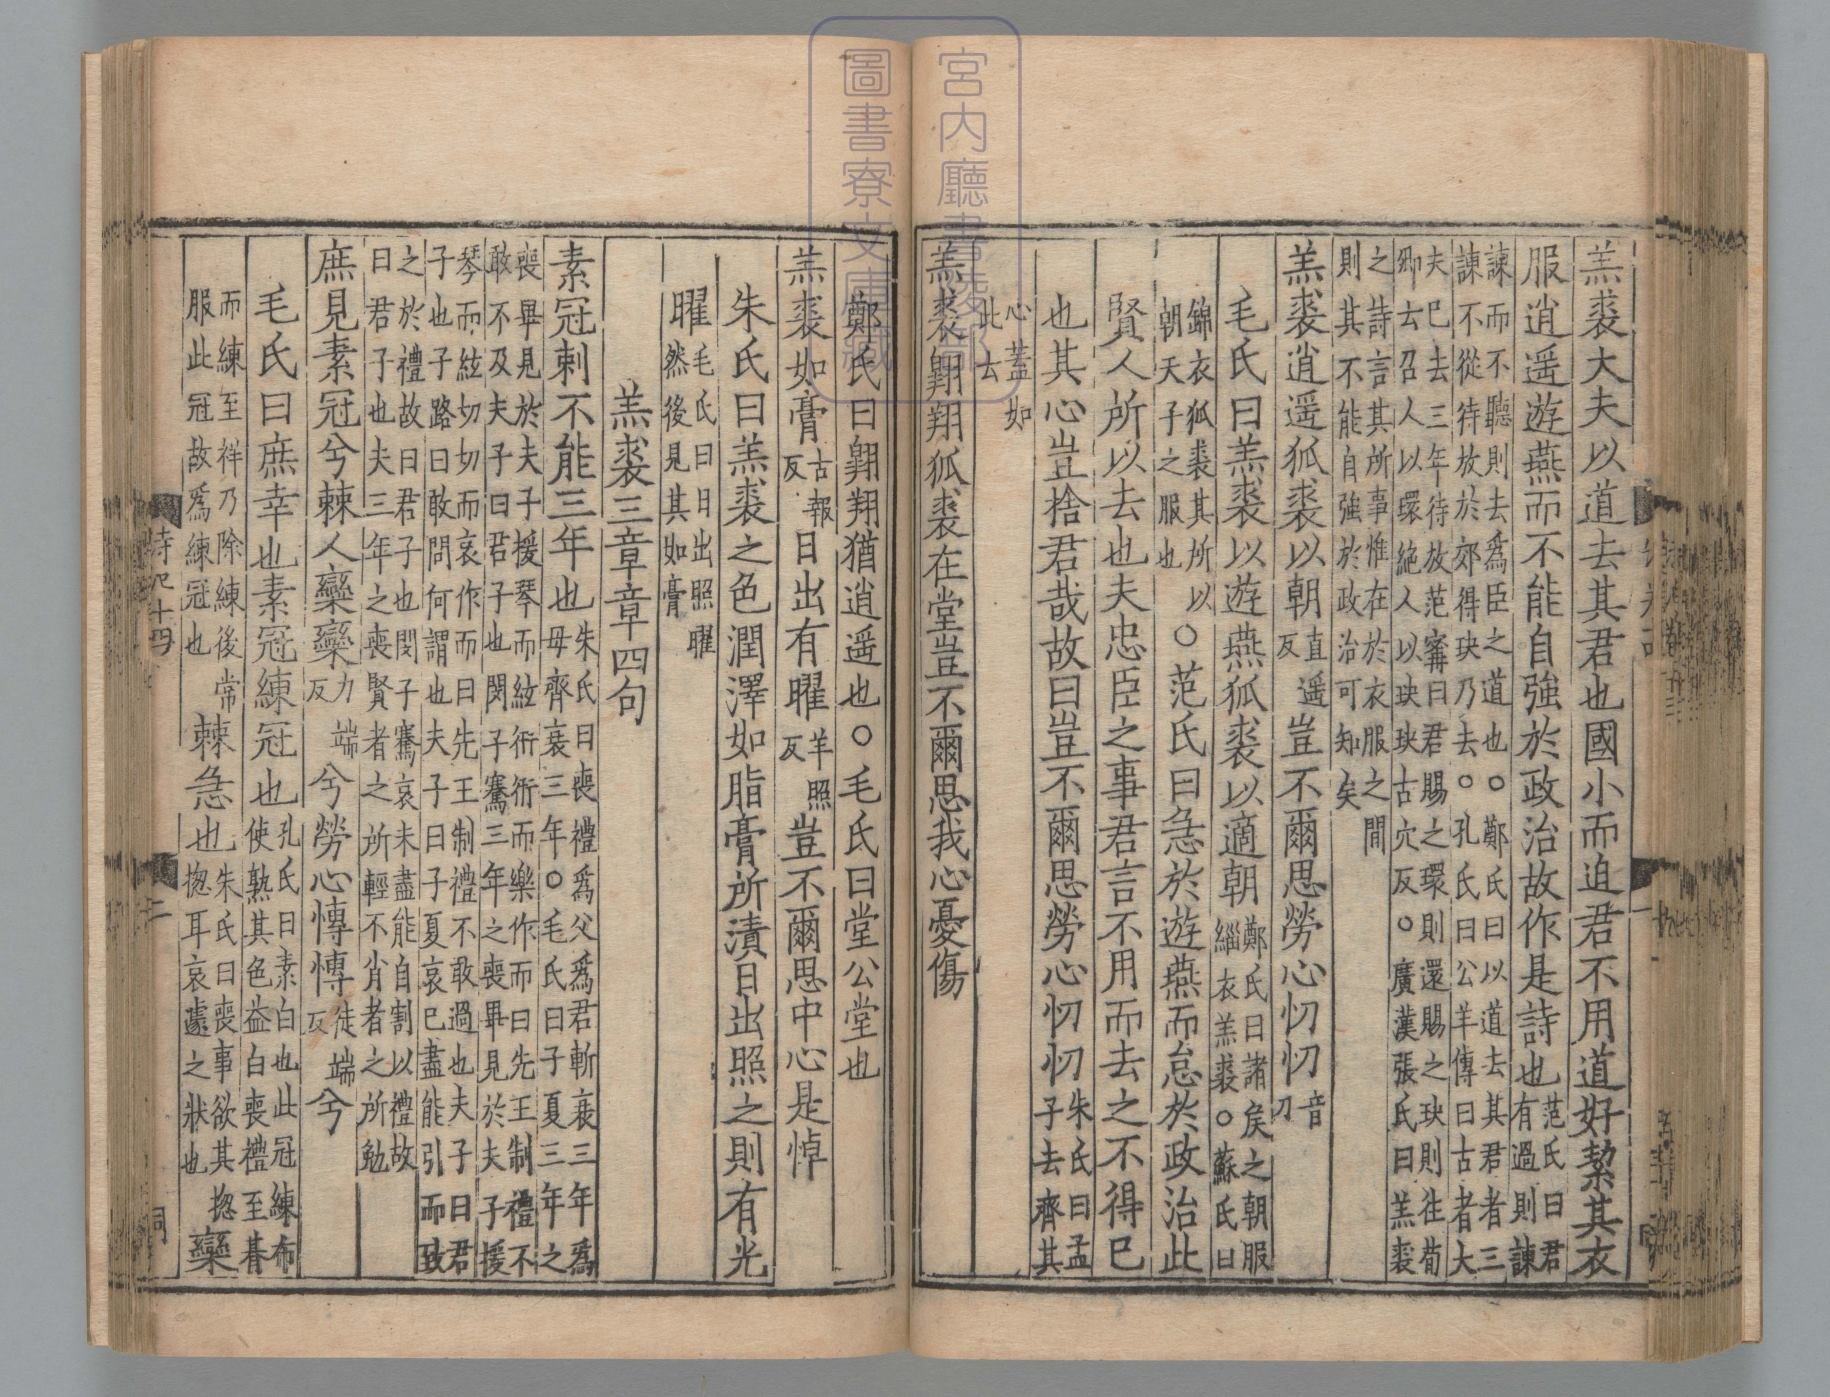 羔裘大夫以道去其君也國小而迫君不用道好絜其衣
服逍遥遊燕而不能自強於政治故作是詩也范氏曰君有過則諫
諫而不聽則去爲臣之道也○鄭氏曰以道去其君者三
諫不從待放於郊得玦乃去○孔氏曰公羊傳曰古者大
夫已去三年待放范甯曰君賜之環則還賜之玦則往荀
卿去召人以環絶人以玦玦古穴反○廣漢張氏曰羔裘
之詩言其所事惟在於衣服之間
則其不能自強於政治可知矣
羔裘逍遥狐裘以朝直遥反豈不爾思勞心忉忉音刀
毛氏曰羔裘以遊燕狐裘以適朝鄭氏曰諸侯之朝服緇衣羔裘○蘇氏曰
錦衣狐裘其所以朝天子之服也○范氏曰急於遊燕而怠於政治此
賢人所以去也夫忠臣之事君言不用而去之不得已
也其心豈捨君哉故曰豈不爾思勞心忉忉朱氏曰孟子去齊其
心蓋如此去
羔裘翺翔狐裘在堂豈不爾思我心憂傷
鄭氏曰翺翔猶逍遥也○毛氏曰堂公堂也
羔裘如膏古報反日出有曜羊照反豈不爾思中心是悼
朱氏曰羔裘之色潤澤如脂膏所漬日出照之則有光
曜毛氏曰日出照曜然後見其如膏
羔裘三章章四句
素冠刺不能三年也朱氏曰喪禮爲父爲君斬衰三年爲母齊衰三年○毛氏曰子夏三年之
喪畢見於夫子援琴而絃衎衎而樂作而曰先王制禮不
敢不及夫子曰君子也閔子騫三年之喪畢見於夫子援
琴而絃切切而哀作而曰先王制禮不敢過也夫子曰君
子也子路曰敢問何謂也夫子曰子夏哀已盡能引而致
之於禮故曰君子也閔子騫哀未盡能自割以禮故
曰君子也夫三年之喪賢者之所輕不肖者之所勉
庶見素冠兮棘人欒欒力端反兮勞心慱慱徒端反兮
毛氏曰庶幸也素冠練冠也孔氏曰素白也此冠練布使熟其色益白喪禮至朞
而練至祥乃除練後常服此冠故爲練冠也棘急也朱氏曰喪事欲其揔揔耳哀遽之狀也欒
詩記十四
二
宮内廳書陵部
圖書寮文庫藏